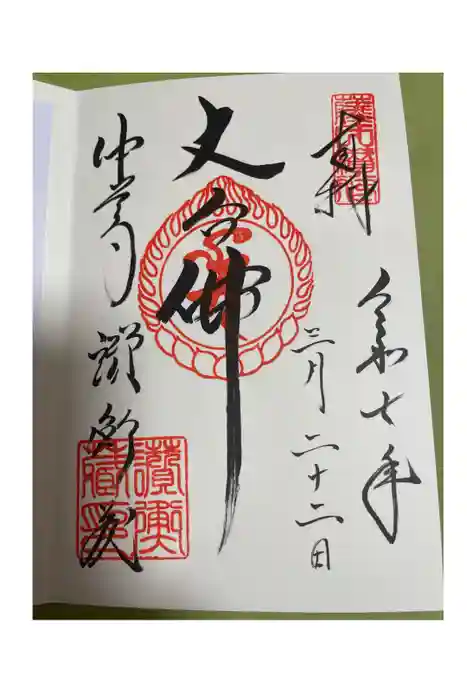 奉拝
令和七年
三月二十二日
丈六佛
中尊寺 讃衡蔵
讃衡
蔵印